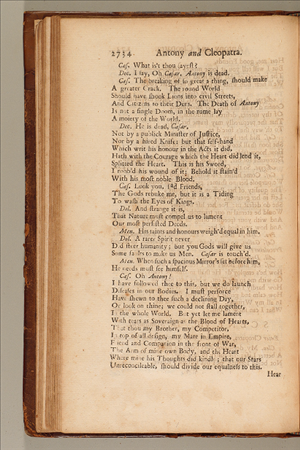 2734 Antony and Cleopatra.
Cæs. What is't thou sayest?
Dec. I say, Oh Cæsar, Antony is dead.
Cæs. The breaking of so great a thing, should make
A greater Crack. The round World
Should have shook Lions into civil Streets,
And Citizens to their Dens. The Death of Antony
Is not a single Doom, in the name lay
A moiety of the World.
Dec. He is dead, Cæsar,
Not by a publick Minister of Justice,
Nor by a hired Knife; but that self-hand
Which writ his honour in the Acts it did,
Hath with the Courage which the Heart did lend it,
Splitted the Heart. This is his Sword,
I robb'd his wound of it; Behold it stain'd
With his most noble Blood.
Cæs. Look you, sad Friends,
The Gods rebuke me, but it is a Tiding
To wash the Eyes of Kings.
Dol. And strange it is,
That Nature must compel us to lament
Our most persisted Deeds.
Mec. His taints and honours weigh'd equal in him.
Dol. A rarer Spirit never
Did steer humanity; but you Gods will give us
Some faults to make us Men. Cæsar is touch'd.
Mec. When such a spacious Mirror's set before him,
He needs must see himself.
Cæs. Oh Antony!
I have followed thee to this, but we do launch
Diseases in our Bodies. I must perforce
Have shewn to thee such a declining Day,
Or look on thine; we could not stall together,
In the whole World. But yet let me lament
With tears as Soveraign as the Blood of Hearts,
That thou my Brother, my Competitor,
In top of all design, my Mate in Empire,
Friend and Companion in the front of War,
The Arm of mine own Body, and the Heart
Where mine his Thoughts did kindle; that our Stars
Unreconcileable, should divide our equalness to this.
Hear